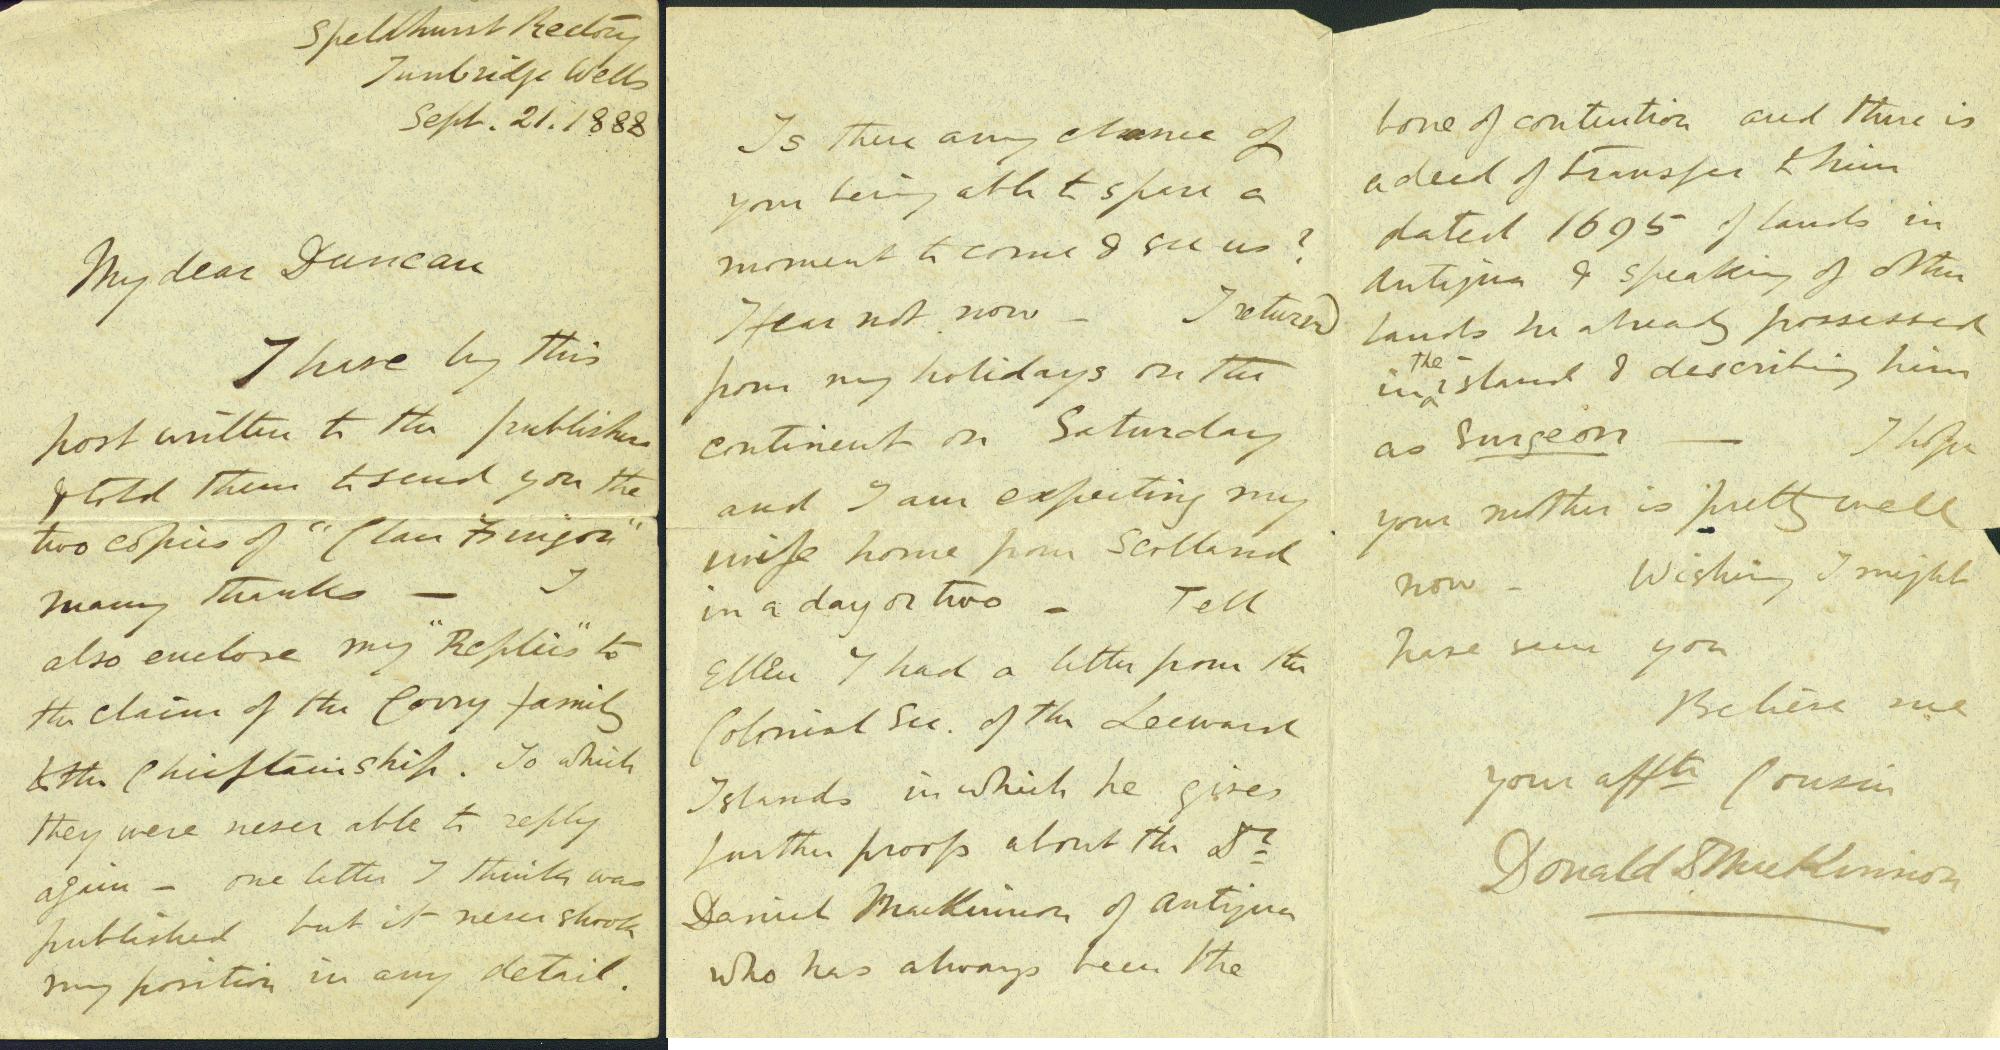 Speldhurst Rectory
Tunbridge Wells
Sept. 21. 1888
My dear Duncan
I have by this
post written to the publishers
& told them to send you the
two copies of "Clan Fingon"
many thanks — I
also enclose my "Replies" to
the claim of the Corry family
to the Chieftainship. To which
they were never able to reply
again — one letter I think was
published but it never shook
my position in any detail.
Is there any chance of
your being able to spare a
moment to come & see us?
I fear not now — I returned
from my holidays on the
continent on Saturday
and I am expecting my
wife home from Scotland
in a day or two — Tell
Ellen I had a letter from the
Colonial Sec. of the Leeward
Islands in which he gives
further proofs about the Dr
Daniel MacKinnon of Antigua
who has always been the
bone of contention and there is
a deed of transfer to him
dated 1695 of lands in
Antigua & speaking of other
lands he already possessed
in the island & describing him
as Surgeon — I hope
your mother is pretty well
now — Wishing I might
have seen you
Believe me
your affte Cousin
Donald D MacKinnon